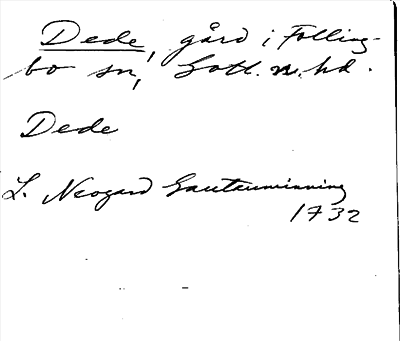 Dede, gård i Folling-
bo sn, Gotl. n. hd.
Dede
L. Neogard Gautauminning
1732